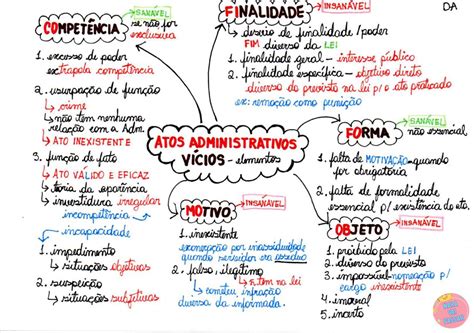 COMPETÊNCIA
SANÁVEL
se não for
exclusiva
1. excesso de poder
extrapola competência
2. usurpação de função
↳ crime
↳ não tem nenhuma
relação com a Adm
↳ ATO INEXISTENTE
3. função de fato
↳ ATO VÁLIDO E EFICAZ
↳ teoria da aparência
↳ investidura irregular
incompetência
≠ incapacidade
1. impedimento
↳ situações objetivas
2. suspeição
↳ situações subjetivas
FINALIDADE
INSANÁVEL
DA
↳ desvio de finalidade/poder
FIM diverso da LEI
1. finalidade geral - interesse público
2. finalidade específica - objetivo direto
diverso do previsto na lei p/ o ato praticado
ex: remoção como punição
ATOS ADMINISTRATIVOS
VÍCIOS - elementos
FORMA
SANÁVEL
não essencial
1. falta de MOTIVAÇÃO quando
for obrigatória
2. falta de formalidade
essencial p/ existência do ato.
MOTIVO
INSANÁVEL
1. inexistente
exoneração por inassiduidade
quando servidor era assíduo
2. falso, ilegítimo
↳ ñ tem na lei
↳ cometeu infração
diversa da informada.
OBJETO
INSANÁVEL
1. proibido pela LEI
2. diverso do previsto
3. impossível nomeação p/
cargo inexistente
4. imoral
5. incerto